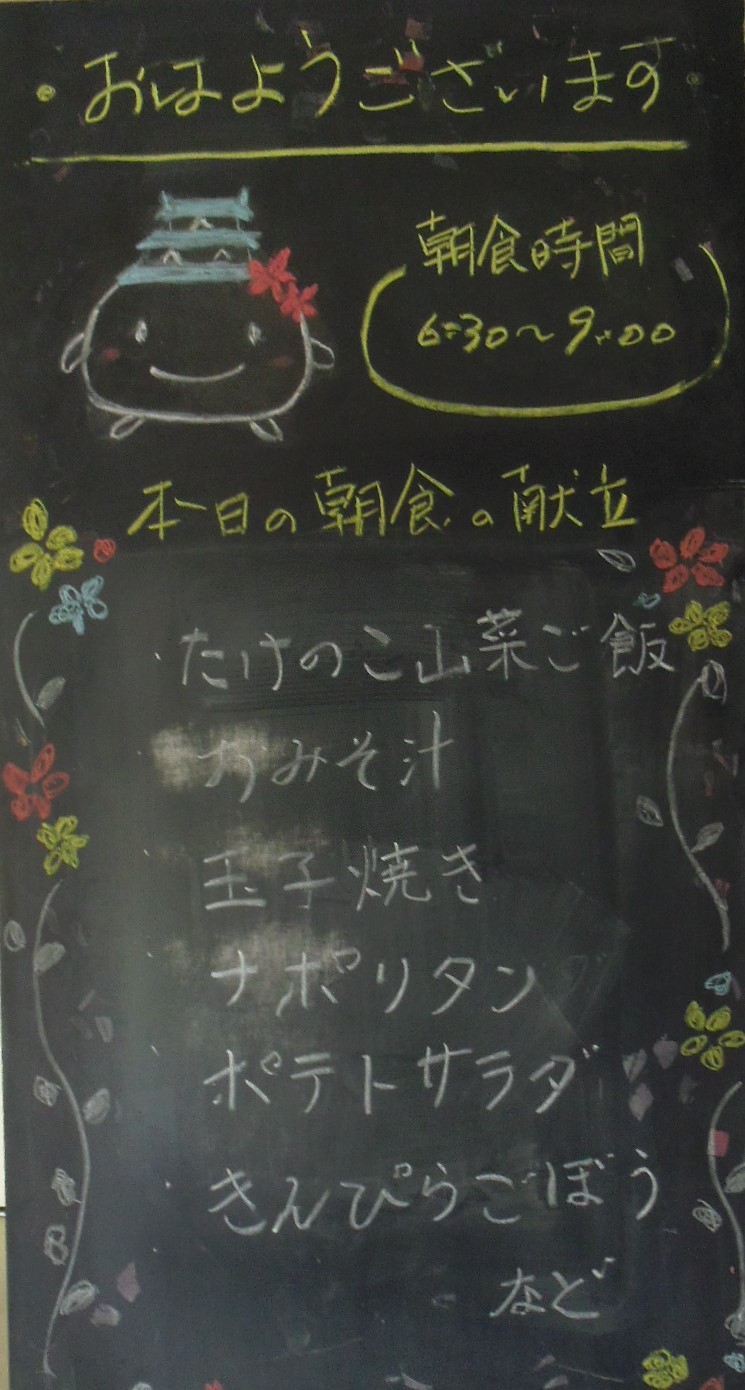 ・おはようございます・
朝食時間
6:30〜9:00
本日の朝食の献立
・たけのこ山菜ご飯
・おみそ汁
・玉子焼き
・ナポリタン
・ポテトサラダ
・きんぴらごぼう
など